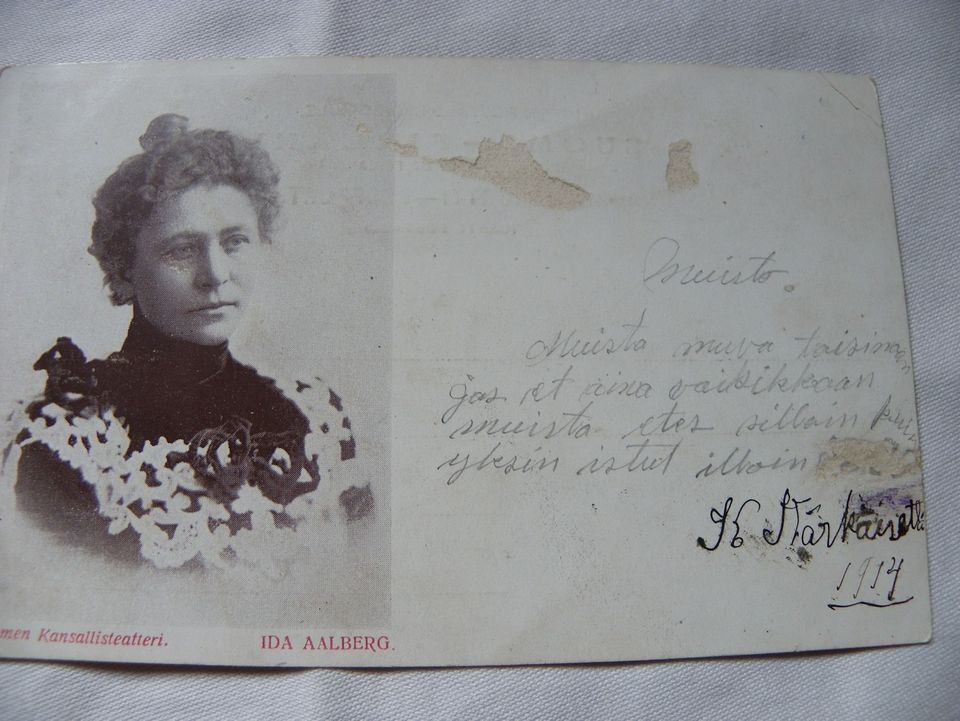 Muisto.
Muista muva toisinaan
jos et aina vaiksikkaan
muista etes silloin kuin
yksin istut illoin
K Kärkäiselt
1914
men Kansallisteatteri.
IDA AALBERG.